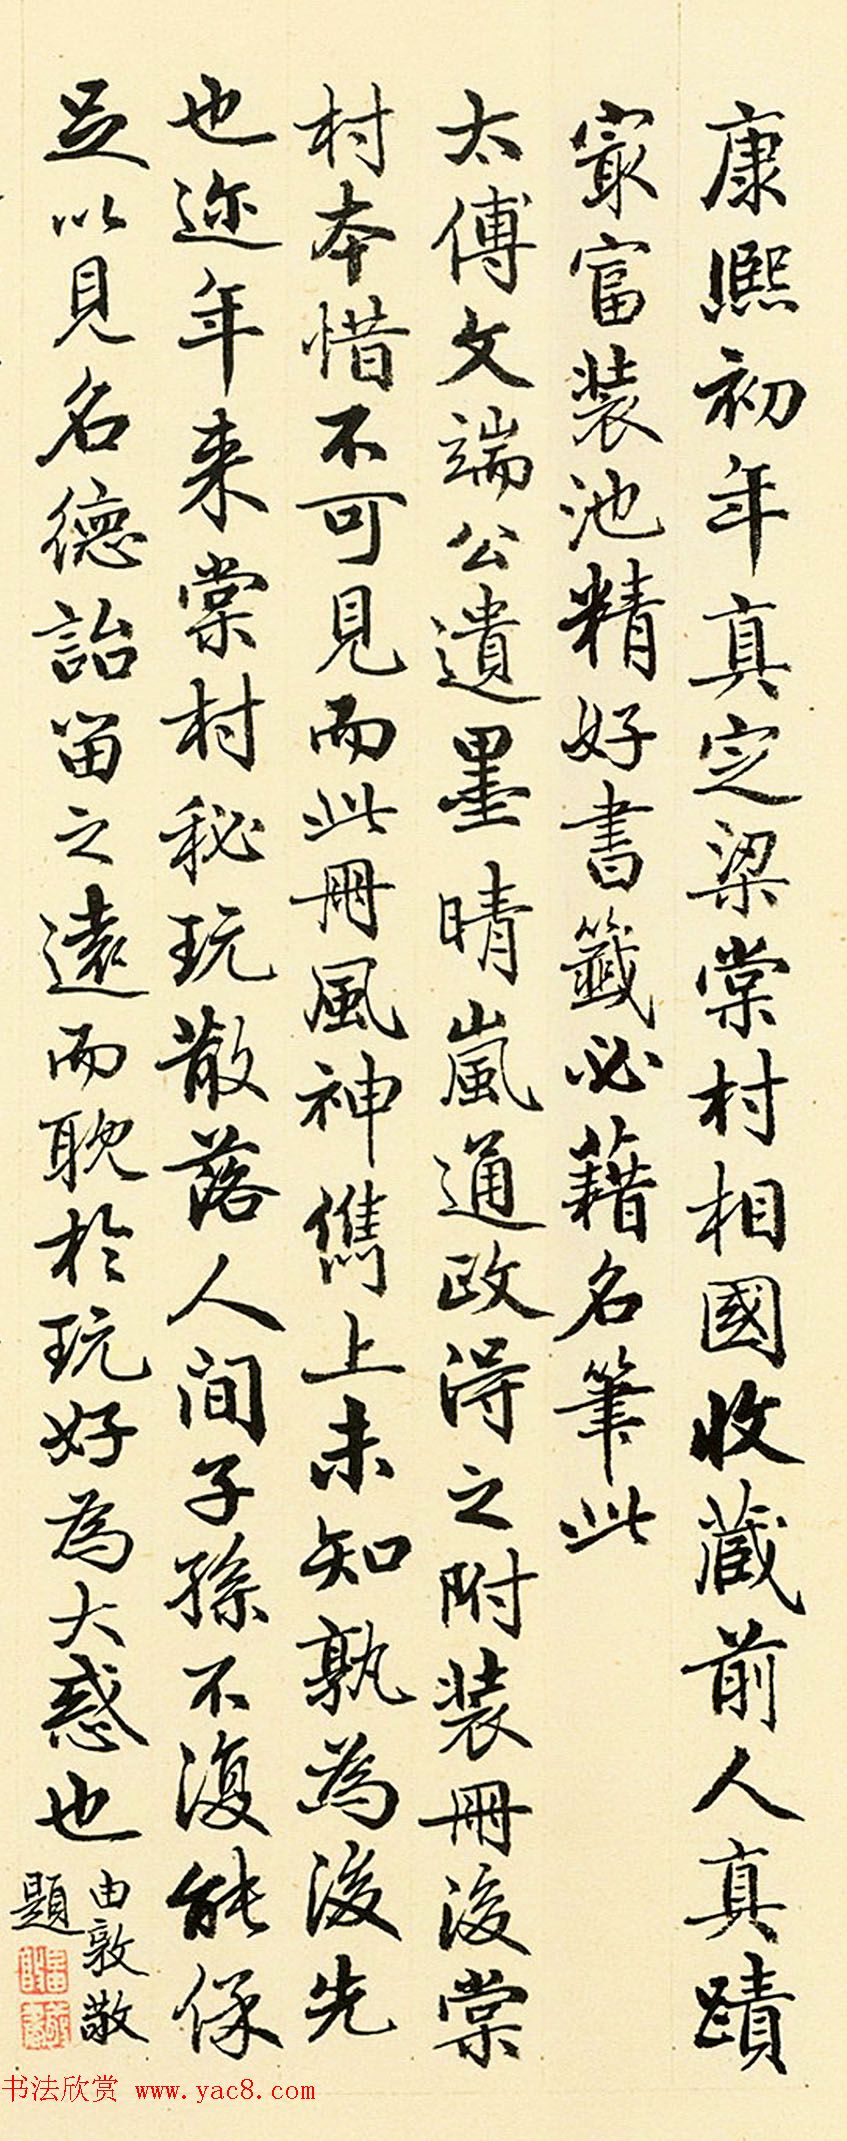 康熙初年真定梁棠村相國收藏前人真蹟
寂富装池精好書籤必藉名筆此
太傅文端公遺墨晴嵐通政得之附装冊後棠
村本惜不可見而此冊風神儁上未知孰為後先
也迩年来棠村秘玩散落人间子孫不復能保
足以見名德詒留之遠而耽於玩好為大惑也
由敦敬
題
书法欣赏 www.yac8.com